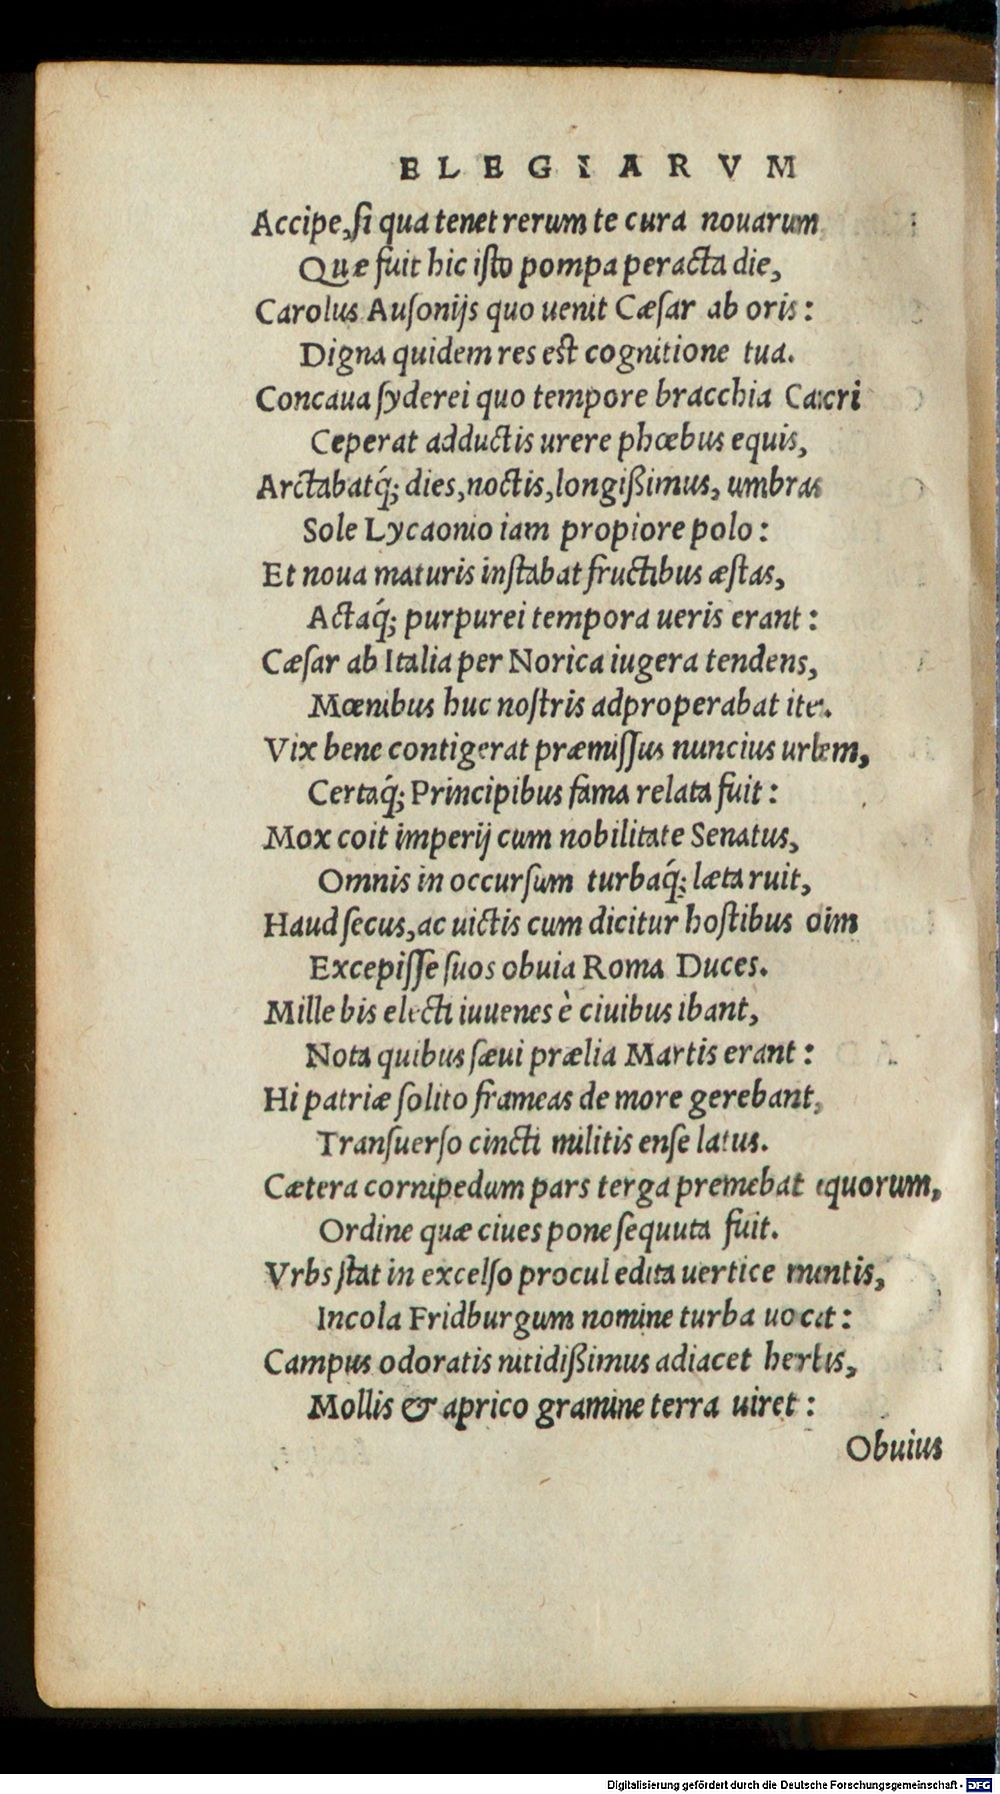 ELEGIARVM
Accipe, ſi qua tenet rerum te cura nouarum,
Quæ fuit hic iſto pompa peracta die,
Carolus Auſonijs quo uenit Cæſar ab oris:
Digna quidem res est cognitione tua.
Concaua ſyderei quo tempore bracchia Cancri
Ceperat adductis urere phœbus equis,
Arctabatq́; dies, noctis, longißimus, umbras
Sole Lycaonio iam propiore polo:
Et noua maturis inſtabat fructibus æſtas,
Actaq́; purpurei tempora ueris erant:
Cæſar ab Italia per Norica iugera tendens,
Mœnibus huc noſtris adproperabat iter.
Vix bene contigerat præmiſſus nuncius urbem,
Certaq́; Principibus fama relata fuit:
Mox coit imperij cum nobilitate Senatus,
Omnis in occurſum turbaq́; læta ruit,
Haud ſecus, ac uictis cum dicitur hoſtibus olim
Excepiſſe ſuos obuia Roma Duces.
Mille bis electi iuuenes è ciuibus ibant,
Nota quibus ſæui prælia Martis erant:
Hi patriæ ſolito frameas de more gerebant,
Tranſuerſo cincti militis enſe latus.
Cætera cornipedum pars terga premebat equorum,
Ordine quæ ciues pone ſequuta fuit.
Vrbs ſtat in excelſo procul edita uertice montis,
Incola Fridburgum nomine turba uocat:
Campus odoratis nitidißimus adiacet herbis,
Mollis & aprico gramine terra uiret:
Obuius
Digitalisierung gefördert durch die Deutsche Forschungsgemeinschaft - DFG